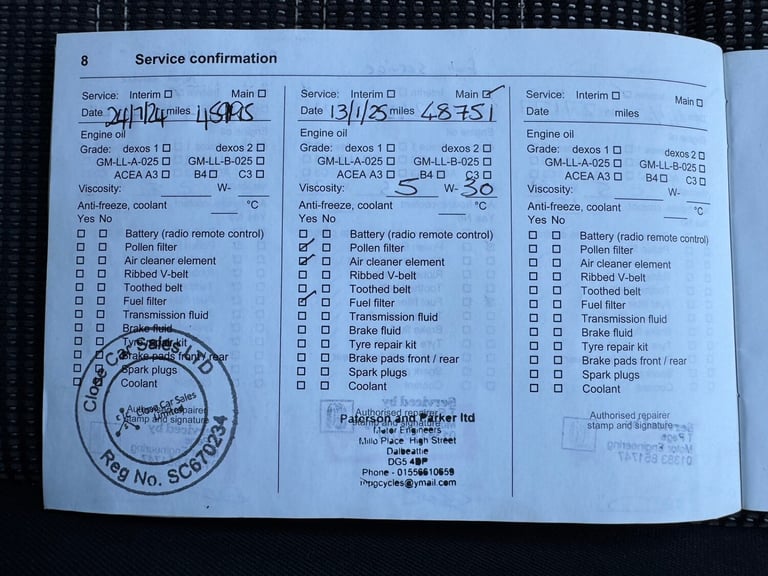 8 Service confirmation
Service: Interim Main
Date 24/7/24 miles
Engine oil
Grade: dexos 1 dexos 2
GM-LL-A-025 GM-LL-B-025
ACEA A3 B4 C3
Viscosity: W-
Anti-freeze, coolant °C
Yes No
Battery (radio remote control)
Pollen filter
Air cleaner element
Ribbed V-belt
Toothed belt
Fuel filter
Transmission fluid
Brake fluid
Tyre repair kit
Brake pads front / rear
Spark plugs
Coolant
Authorised repairer
stamp and signature
Close Car Sales LTD
Close Car Sales
Limited
Reg No. SC670234
Service: Interim Main
Date 13/1/25 miles 48751
Engine oil
Grade: dexos 1 dexos 2
GM-LL-A-025 GM-LL-B-025
ACEA A3 B4 C3
Viscosity: 5 W- 30
Anti-freeze, coolant °C
Yes No
Battery (radio remote control)
Pollen filter
Air cleaner element
Ribbed V-belt
Toothed belt
Fuel filter
Transmission fluid
Brake fluid
Tyre repair kit
Brake pads front / rear
Spark plugs
Coolant
Authorised repairer
stamp and signature
Paterson and Parker ltd
Motor Engineers
Millo Place High Street
Dalbeattie
DG5 4BP
Phone - 01556610659
mpgcycles@ymail.com
Service: Interim Main
Date miles
Engine oil
Grade: dexos 1 dexos 2
GM-LL-A-025 GM-LL-B-025
ACEA A3 B4 C3
Viscosity: W-
Anti-freeze, coolant °C
Yes No
Battery (radio remote control)
Pollen filter
Air cleaner element
Ribbed V-belt
Toothed belt
Fuel filter
Transmission fluid
Brake fluid
Tyre repair kit
Brake pads front / rear
Spark plugs
Coolant
Authorised repairer
stamp and signature